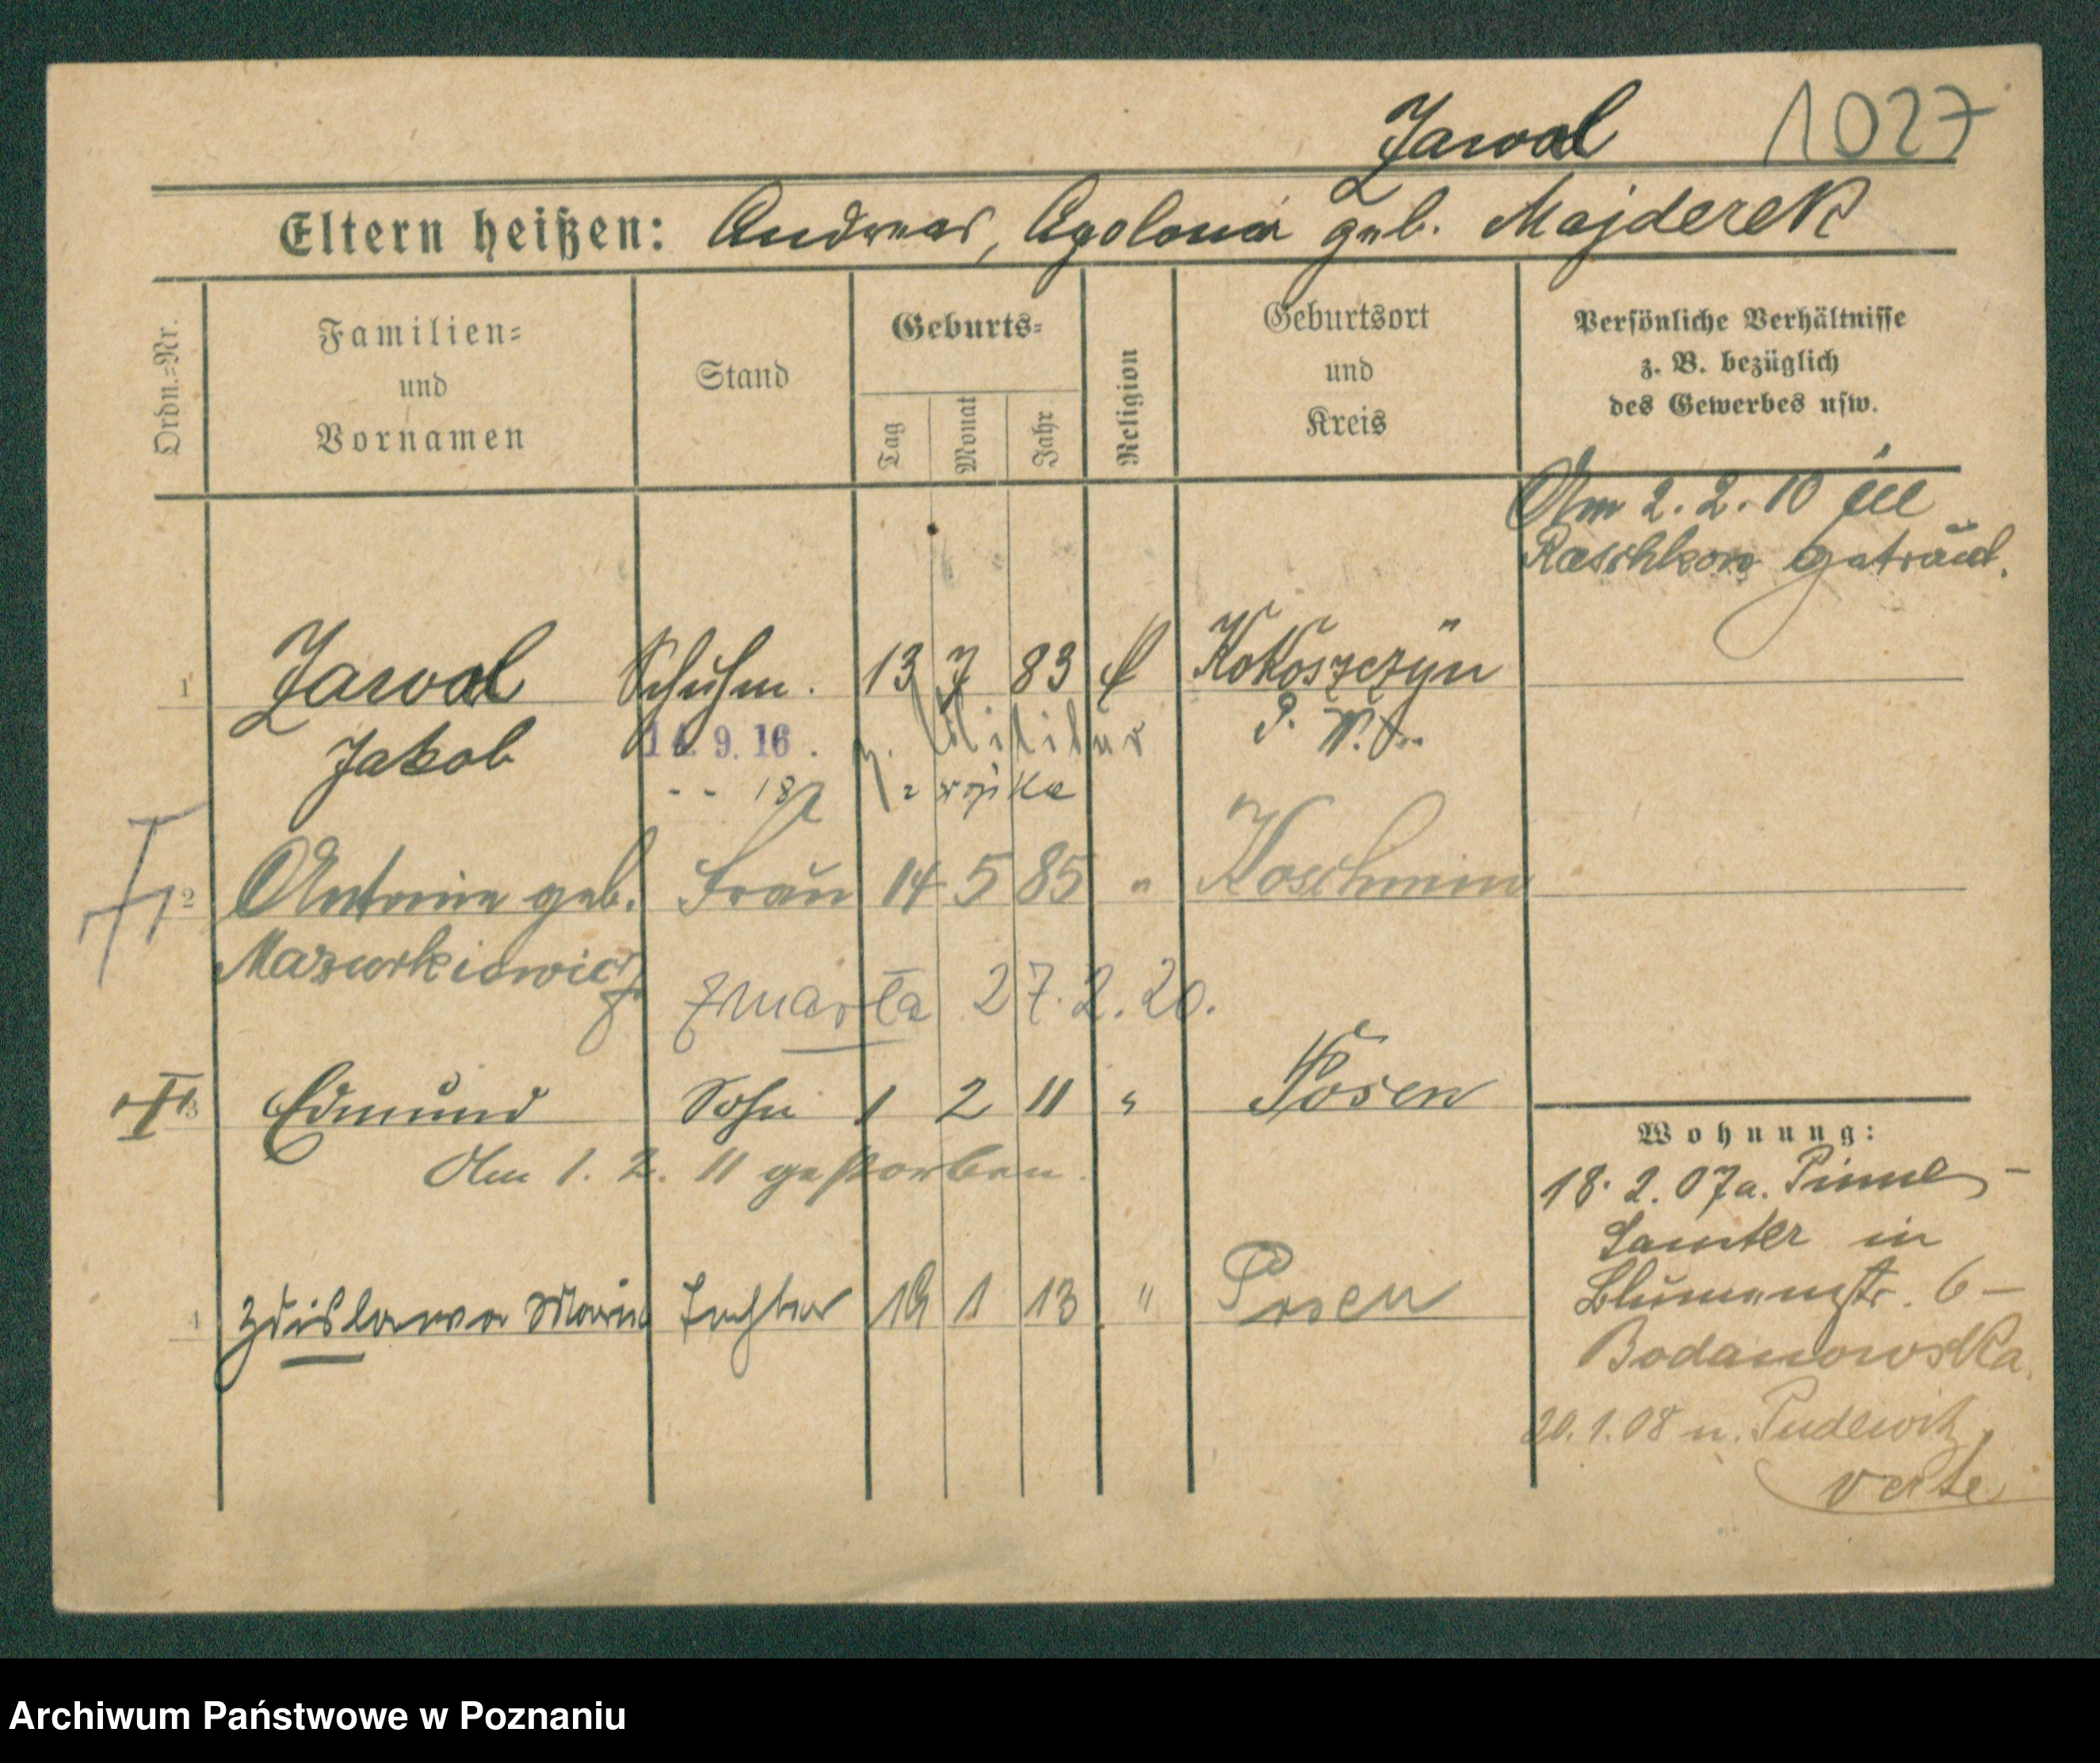 Zawal 1027
Eltern heißen: Andreas, Apolonia geb. Majderek
Ordn.=Nr.
Familien=
und
Vornamen
Stand
Geburts=
Tag
Monat
Jahr
Religion
Geburtsort
und
Kreis
Persönliche Verhältnisse
z. B. bezüglich
des Gewerbes usw.
Am 2.2.10 in
Raschkow getraut.
1 Zawal Schuhm. 13 7 83 k Kokoszczyn
Jakob 14. 9. 16. z. Militär P. W.
18 z wojska
2 Antonie geb. Frau 14 5 85 " Koschmin
Mazurkiewicz
zmarła 27.2.20.
3 Edmund Sohn 1 2 11 " Posen
Am 1. 2. 11 gestorben.
4 Zdislawa Maria Tochter 19 1 13 " Posen
Wohnung:
18. 2. 07 a. Pinne -
Samter in
Blumenstr. 6 -
Bodanowska.
20. 1. 08 n. Pudewitz
verte
Archiwum Państwowe w Poznaniu